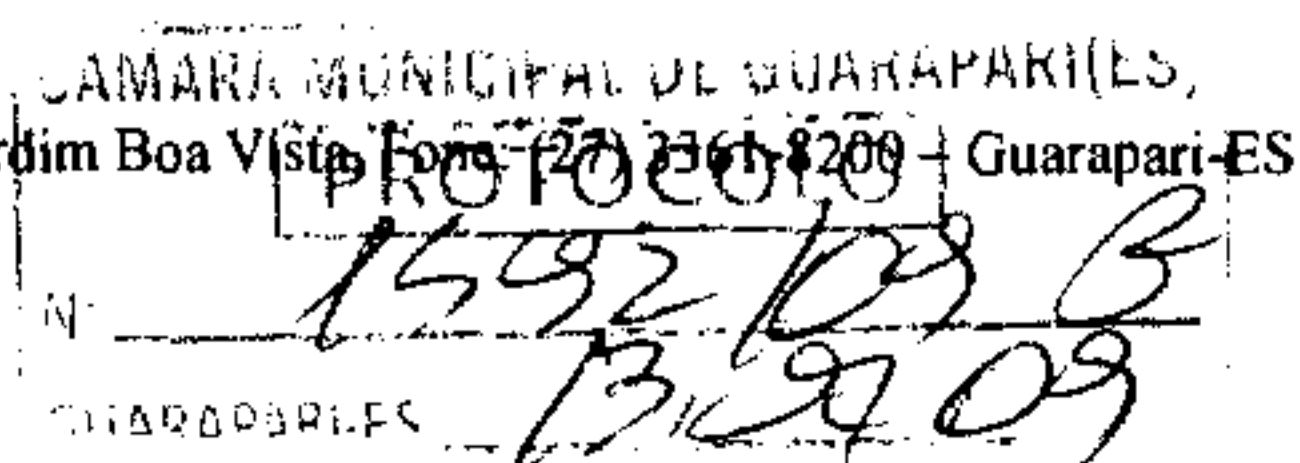 CAMARA MUNICIPAL DE GUARAPARI(ES)
rdim Boa Vista, Fone: (27) 3361-8200 – Guarapari-ES
PROTOCOLO
Nº 1592/09
GUARAPARI-ES 13